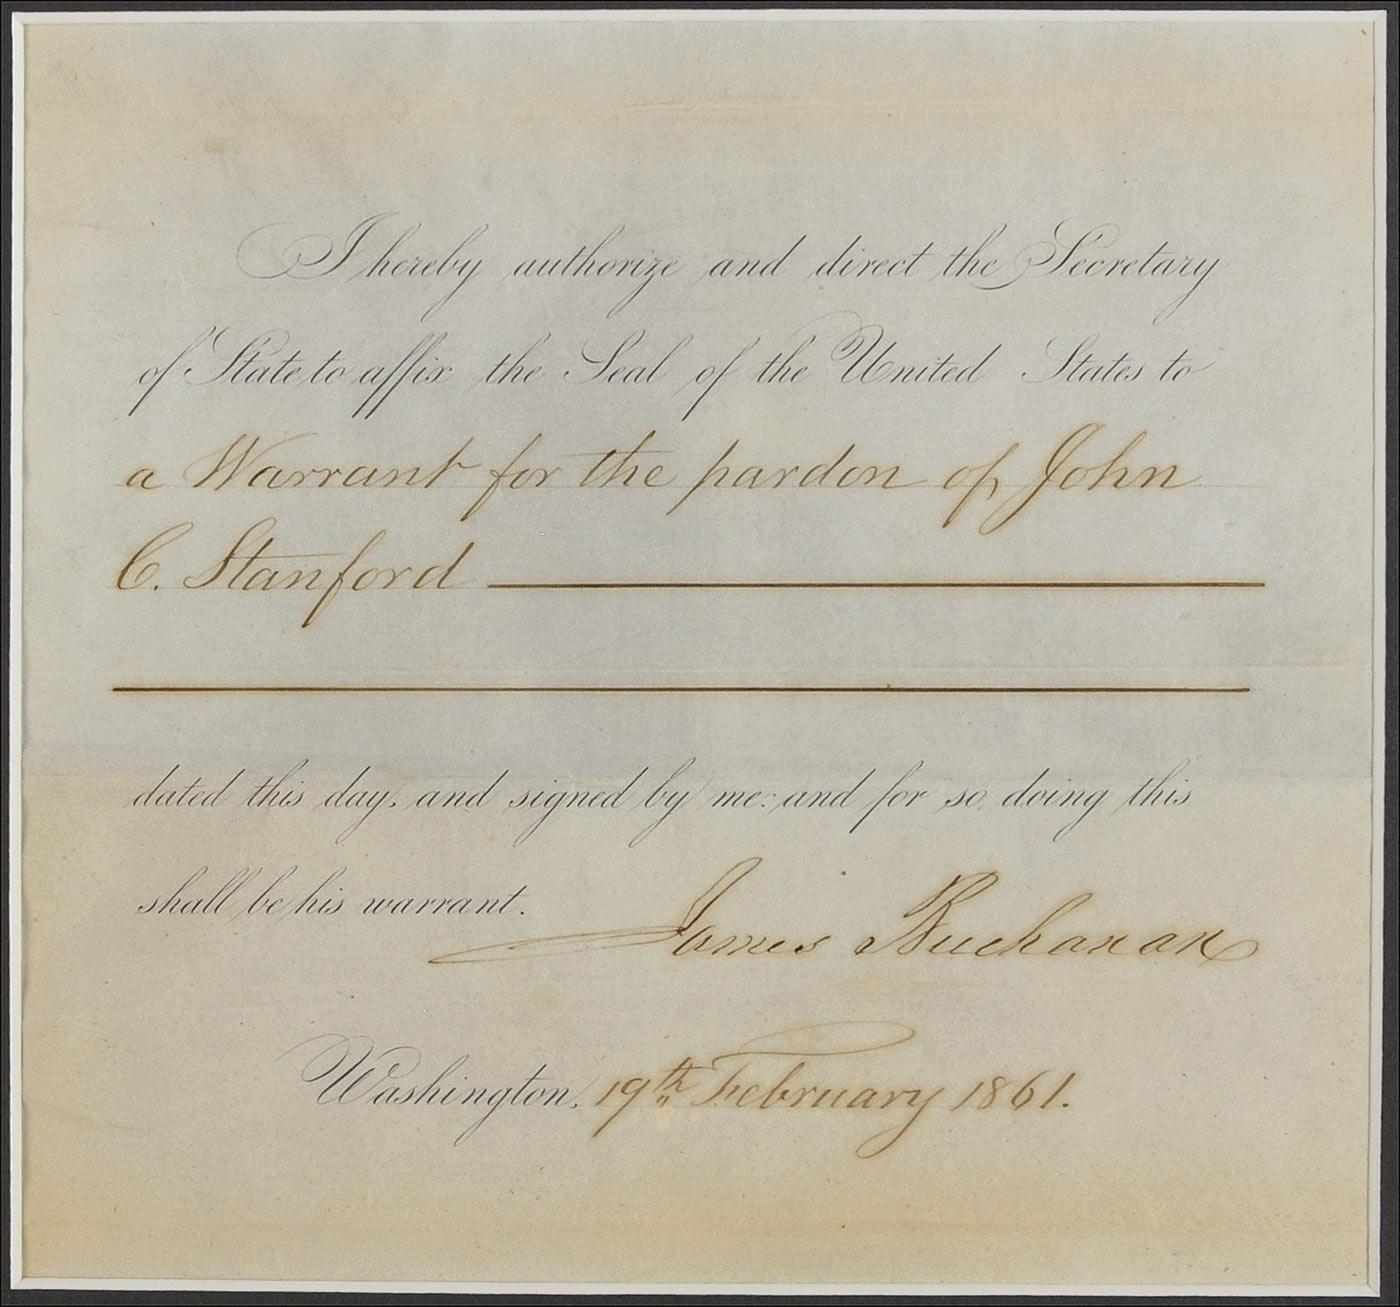 I hereby authorize and direct the Secretary
of State to affix the Seal of the United States to
a Warrant for the pardon of John
C. Stanford
dated this day, and signed by me: and for so doing this
shall be his warrant.
James Buchanan
Washington, 19th February 1861.